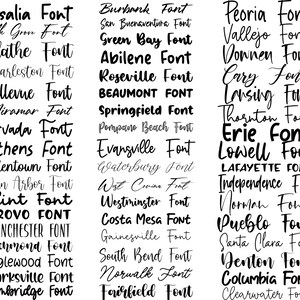 salia Font
Font
athe Font
arleston Font
llevue Font
iramar Font
rvada Font
thens Font
lentown Font
nn Arbor Font
lint Font
ROVO FONT
NCHESTER FONT
chmond Font
glewood Font
arksville Font
mbridge Font
Burbank Font
San Buenaventura Font
Green Bay Font
Abilene Font
Roseville Font
BEAUMONT FONT
Springfield Font
Pompano Beach Font
Evansville Font
Waterbury Font
West Covina Font
Westminster Font
Costa Mesa Font
Gainesville Font
South Bend Font
Norwalk Font
Fairfield Font
Peoria Font
Vallejo
Downey
Cary Font
Lansing
Thornton
Erie Font
Lowell Font
LAFAYETTE
Independence
Norman
Pueblo
Santa Clara
Denton
Columbia
Clearwater